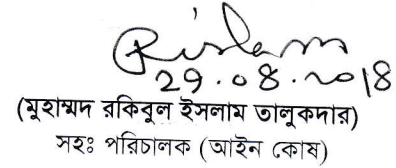 Rislam
29.08.2018
(মুহাম্মদ রকিবুল ইসলাম তালুকদার)
সহঃ পরিচালক (আইন কোষ)